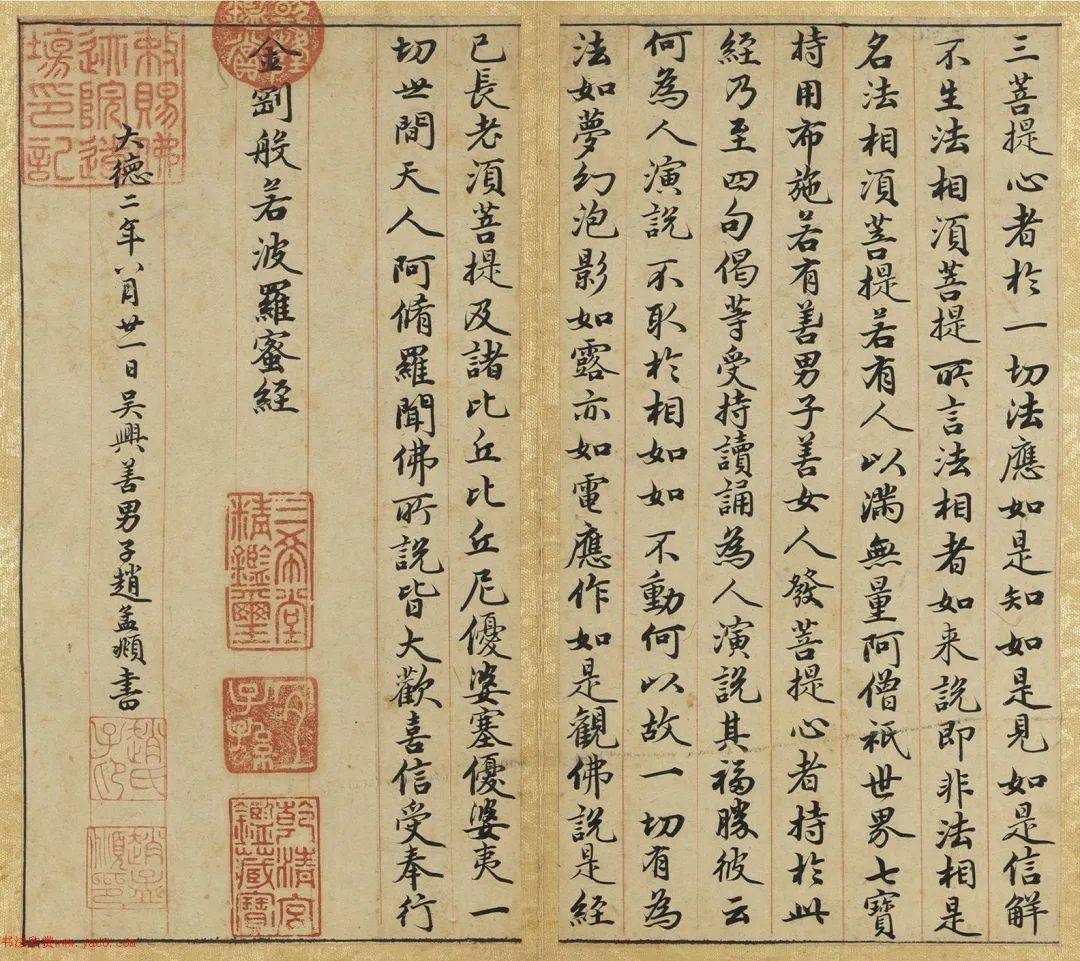 三菩提心者於一切法應如是知如是見如是信解
不生法相須菩提所言法相者如来說即非法相是
名法相須菩提若有人以滿無量阿僧祇世界七寶
持用布施若有善男子善女人發菩提心者持於此
經乃至四句偈等受持讀誦為人演說其福勝彼云
何為人演說不取於相如如不動何以故一切有為
法如夢幻泡影如露亦如電應作如是觀佛說是經
已長老須菩提及諸比丘比丘尼優婆塞優婆夷一
切世間天人阿脩羅聞佛所說皆大歡喜信受奉行
乾隆鑑賞
金剛般若波羅蜜經
三希堂
精鑑璽
宜子孫
乾清宮
鑑藏寶
敕賜佛
迹院道
場印記
大德二年八月廿一日吳興善男子趙孟頫書
趙氏
子印
趙孟
頫印
书法欣赏www.yac8.com